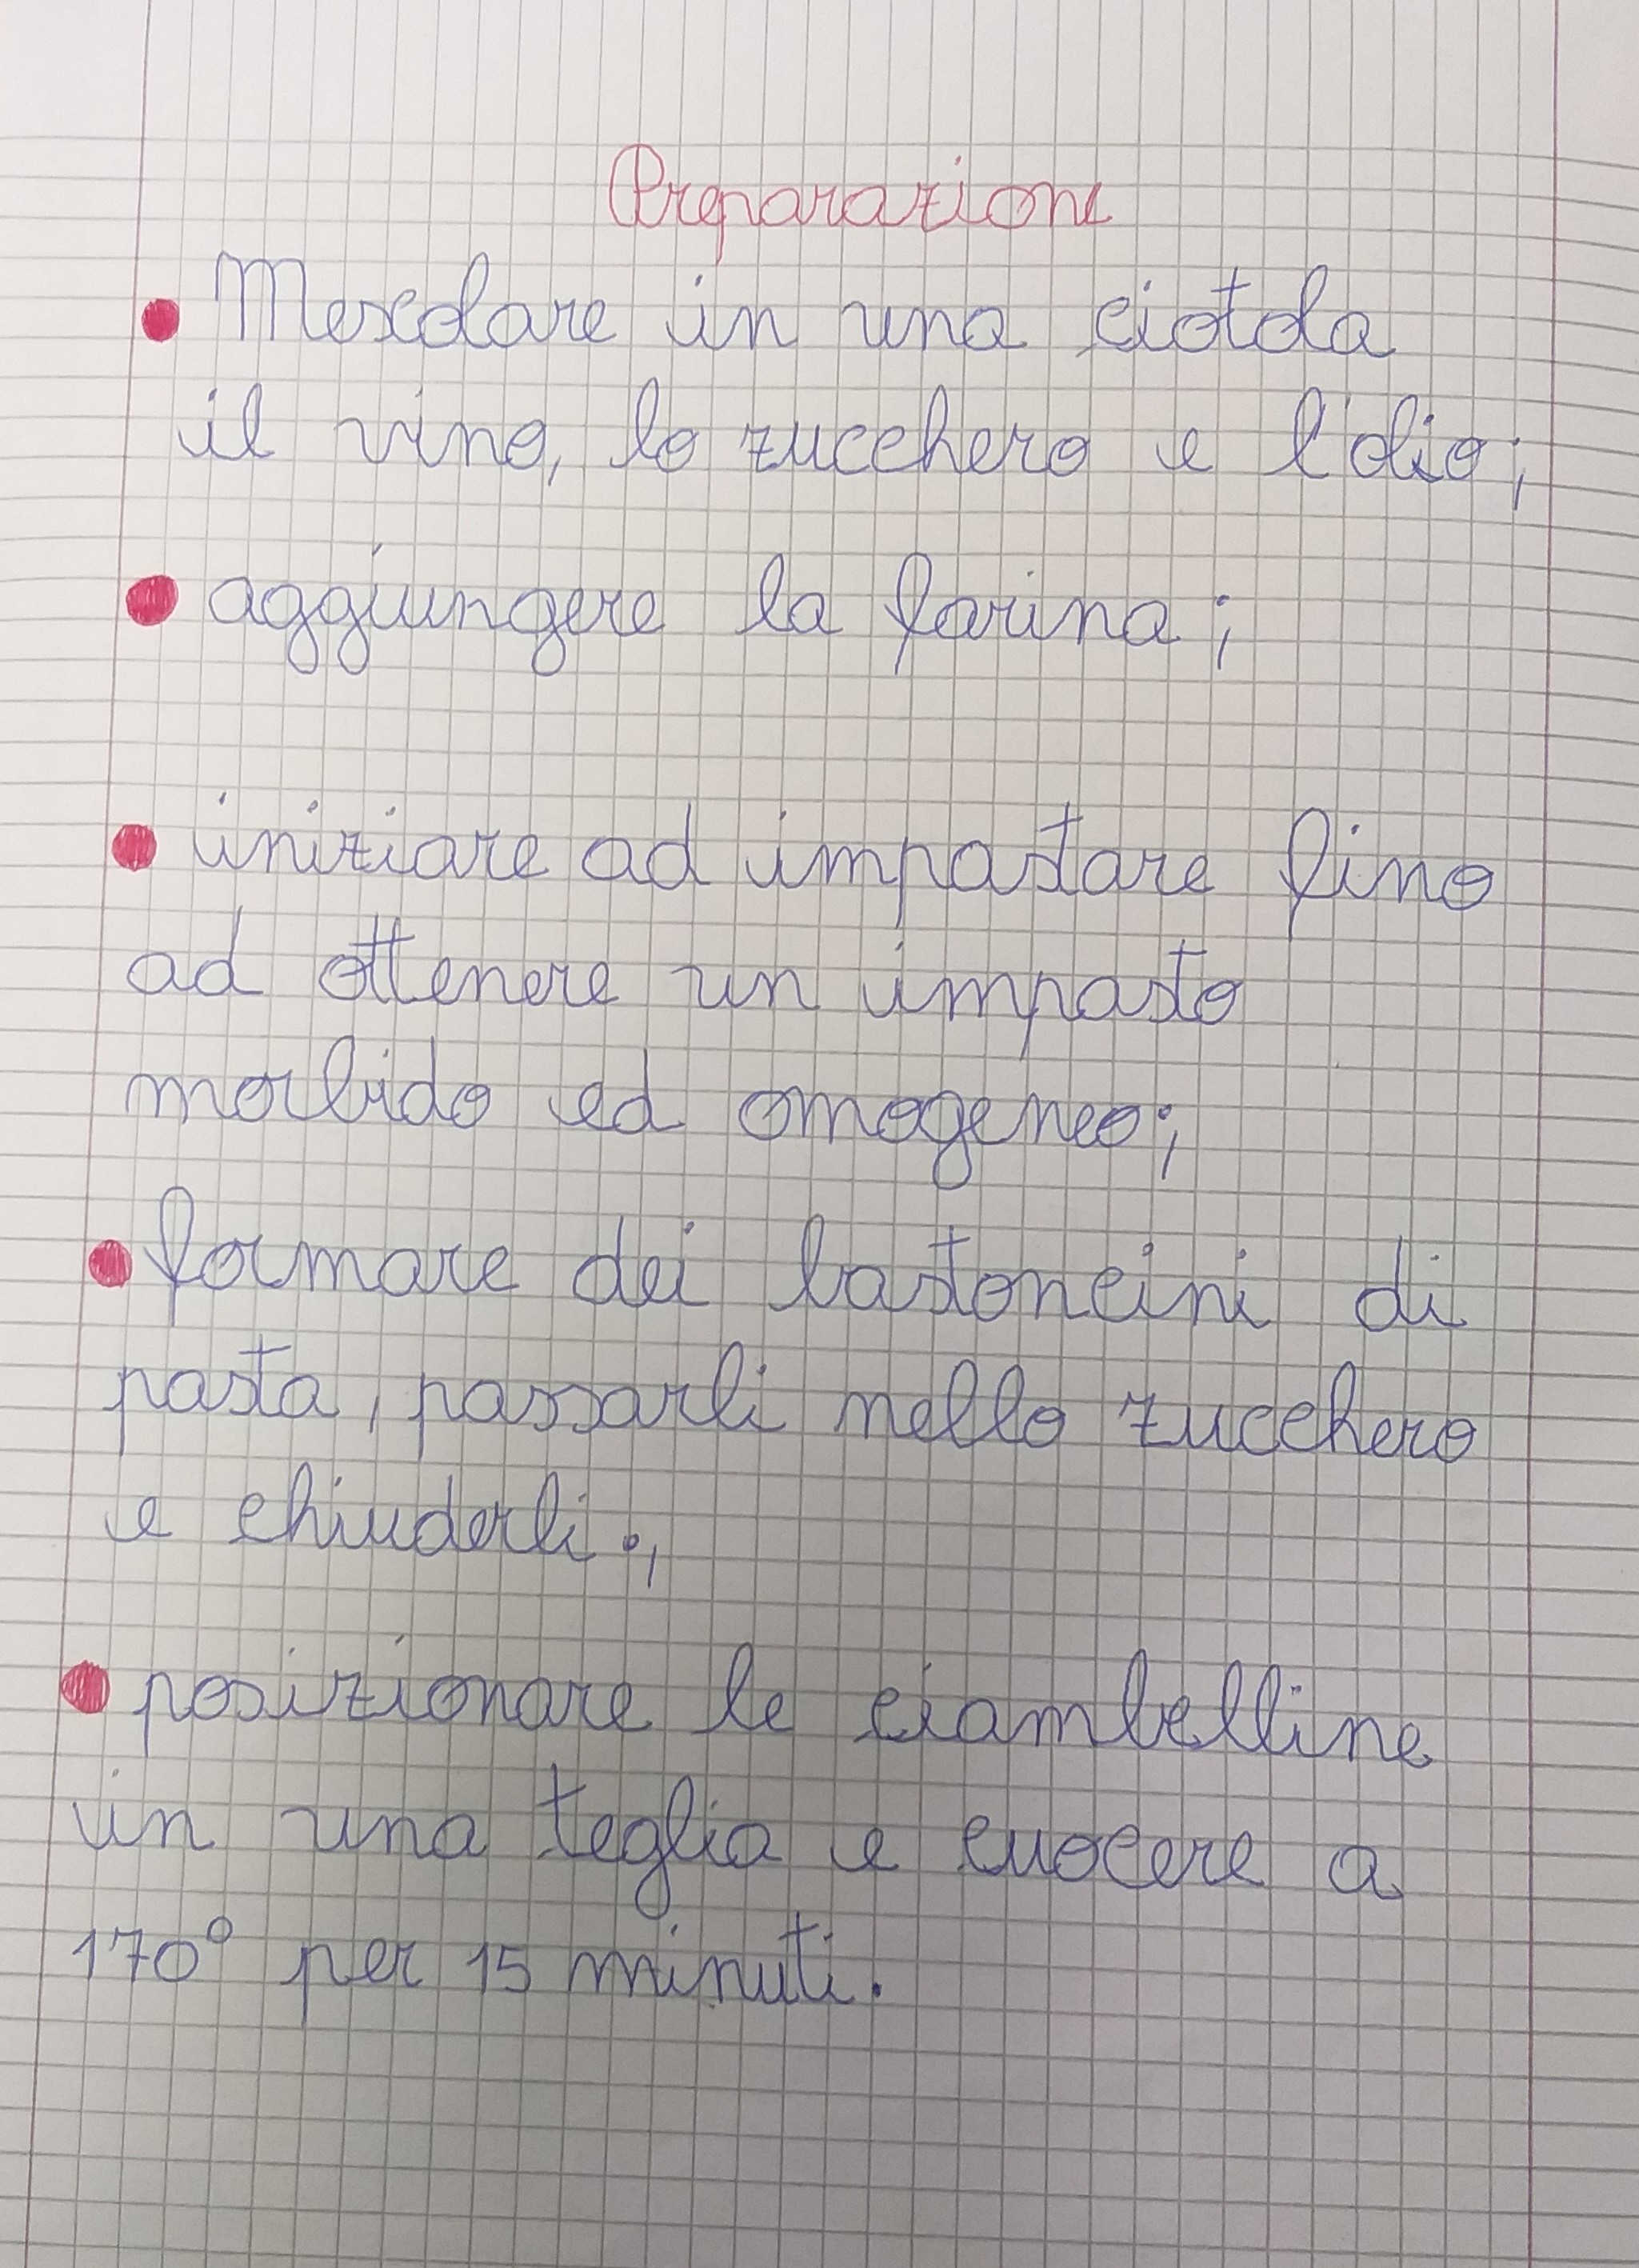 Preparazione
• Mescolare in una ciotola
il vino, lo zucchero e l'olio;
• aggiungere la farina;
• iniziare ad impastare fino
ad ottenere un impasto
morbido ed omogeneo;
• formare dei bastoncini di
pasta, passarli nello zucchero
e chiuderli;
• posizionare le ciambelline
in una teglia e cuocere a
170° per 15 minuti.